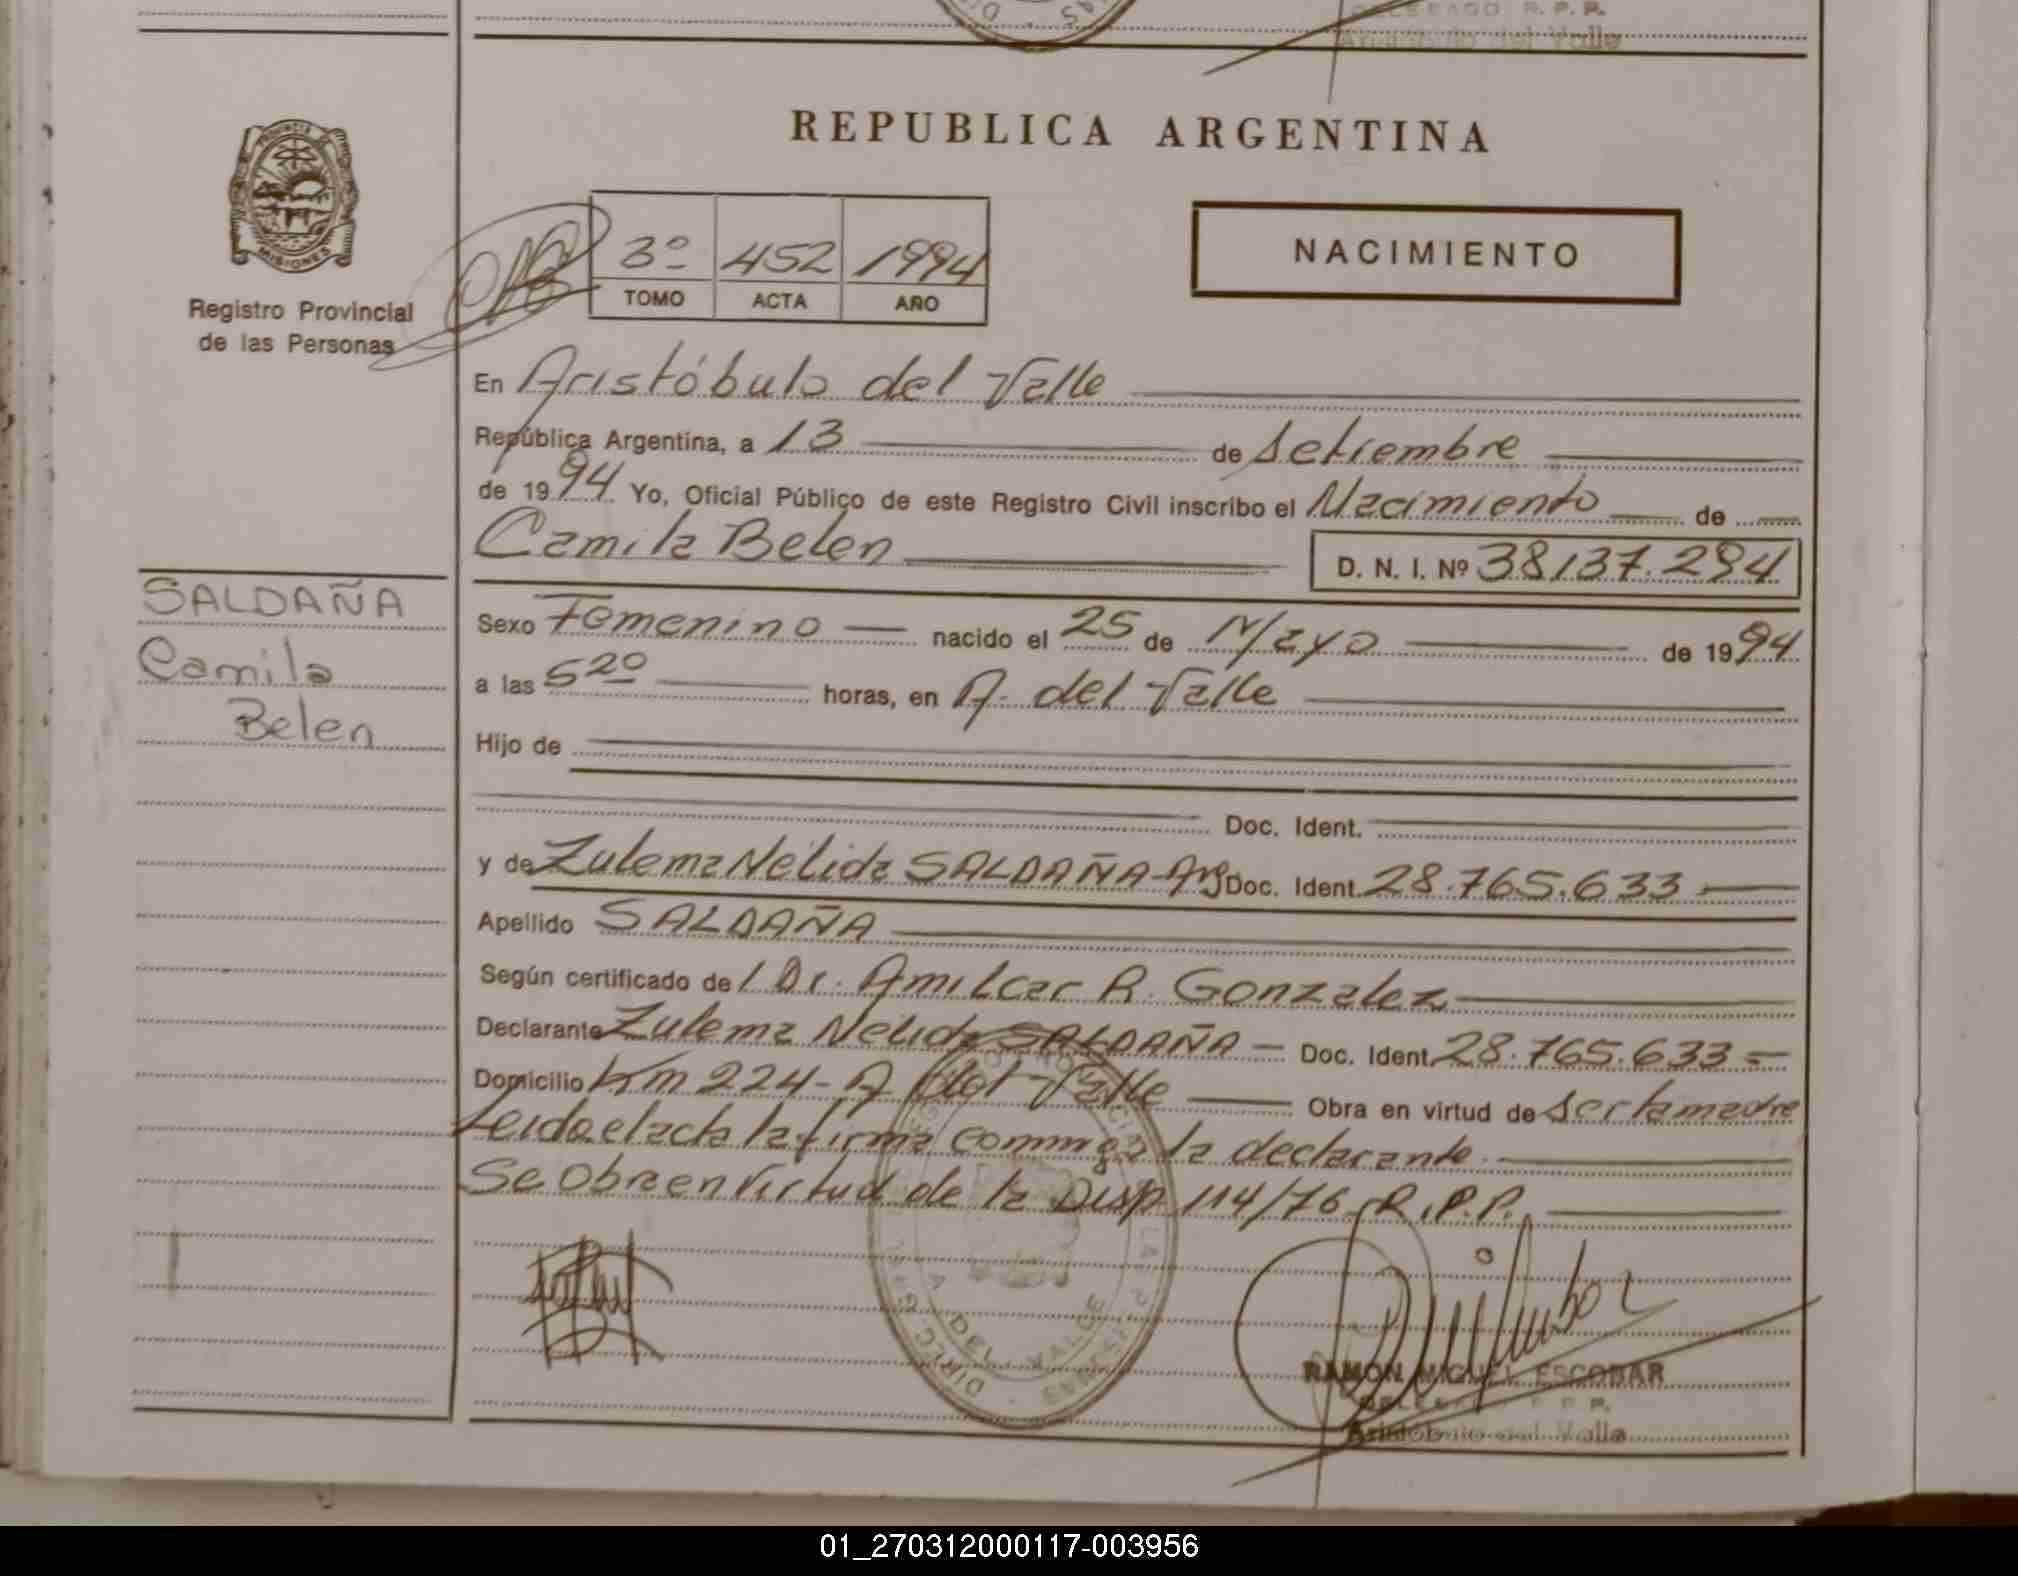 DELEGADO R.P.P.
Aristóbulo del Valle
REPUBLICA ARGENTINA
MISIONES
Registro Provincial
de las Personas
3º 452 1994
TOMO ACTA AÑO
NACIMIENTO
En Aristóbulo del Valle
República Argentina, a 13 de Setiembre
de 1994 Yo, Oficial Público de este Registro Civil inscribo el Nacimiento de
Camila Belen D. N. I. Nº 38.137.294
SALDAÑA
Camila
Belen
Sexo Femenino nacido el 25 de Mayo de 1994
a las 5 20 horas, en A. del Valle
Hijo de
Doc. Ident.
y de Zulema Nélida SALDAÑA-Arg Doc. Ident. 28.765.633
Apellido SALDAÑA
Según certificado de l Dr. Amilcar R. Gonzalez
Declarante Zulema Nélida SALDAÑA Doc. Ident. 28.765.633
Domicilio Km 224- A del Valle Obra en virtud de ser la madre
Leida el acta la firma conmigo la declarante
Se obra en virtud de la Disp 114/76 R.P.P.
A. DEL VALLE
RAMON MIGUEL ESCOBAR
DELEGADO R.P.P.
Aristóbulo del Valle
01_270312000117-003956